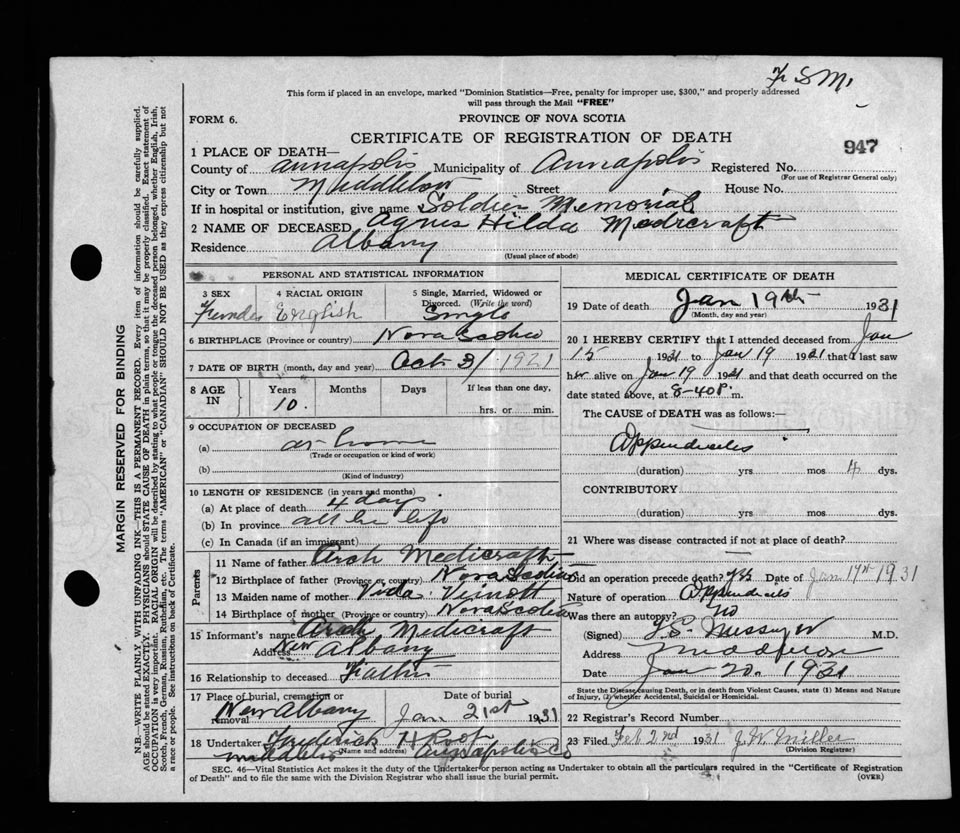 Fr S M.
This form if placed in an envelope, marked "Dominion Statistics—Free, penalty for improper use, $300," and properly addressed
will pass through the Mail "FREE"
FORM 6.
PROVINCE OF NOVA SCOTIA
CERTIFICATE OF REGISTRATION OF DEATH
947
1 PLACE OF DEATH—
County of Annapolis Municipality of Annapolis Registered No.
(For use of Registrar General only)
City or Town Middleton Street House No.
If in hospital or institution, give name Soldier Memorial
2 NAME OF DECEASED Agnes Hilda Medicraft
Residence Albany
(Usual place of abode)
PERSONAL AND STATISTICAL INFORMATION
3 SEX 4 RACIAL ORIGIN 5 Single, Married, Widowed or Divorced. (Write the word)
Female English Single
6 BIRTHPLACE (Province or country) Nova Scotia
7 DATE OF BIRTH (month, day and year) Oct 31 1921
8 AGE IN Years Months Days If less than one day,
10. hrs. or min.
9 OCCUPATION OF DECEASED
(a) at home
(Trade or occupation or kind of work)
(b)
(Kind of industry)
10 LENGTH OF RESIDENCE (in years and months)
(a) At place of death 4 days
(b) In province all her life
(c) In Canada (if an immigrant)
Parents
11 Name of father Arch Medicraft
12 Birthplace of father (Province or country) Nova Scotia
13 Maiden name of mother Vida Veinott
14 Birthplace of mother (Province or country) Nova Scotia
15 Informant's name Arch Medicraft
Address New Albany
16 Relationship to deceased Father
17 Place of burial, cremation or removal Date of burial
New Albany Jan 21st 1931
18 Undertaker Frederick H Roop
Name and address Middleton Annapolis Co
MEDICAL CERTIFICATE OF DEATH
19 Date of death Jan 19th 1931
(Month, day and year)
20 I HEREBY CERTIFY that I attended deceased from Jan
15 1931 to Jan 19 1931 that I last saw
her alive on Jan 19 1931 and that death occurred on the
date stated above, at 8-40 P. m.
The CAUSE of DEATH was as follows:—
Appendicitis
(duration) yrs mos 4 dys.
CONTRIBUTORY
(duration) yrs. mos dys.
21 Where was disease contracted if not at place of death?
Did an operation precede death? yes Date of Jan 17th 1931
Nature of operation Appendicitis
Was there an autopsy? No
(Signed) M.D.
Address Middleton
Date Jan 20. 1931
State the Disease causing Death, or in death from Violent Causes, state (1) Means and Nature
of Injury, (2) whether Accidental, Suicidal or Homicidal.
22 Registrar's Record Number
23 Filed Feb 2nd 1931 J. W. Miller
(Division Registrar)
SEC. 46—Vital Statistics Act makes it the duty of the Undertaker or person acting as Undertaker to obtain all the particulars required in the "Certificate of Registration
of Death" and to file the same with the Division Registrar who shall issue the burial permit.
(OVER)
MARGIN RESERVED FOR BINDING
N.B.—WRITE PLAINLY WITH UNFADING INK—THIS IS A PERMANENT RECORD. Every item of information should be carefully supplied.
AGE should be stated EXACTLY. PHYSICIANS should STATE CAUSE OF DEATH in plain terms, so that it may be properly classified. Exact statement of
OCCUPATION is very important. RACIAL ORIGIN will be described by stating to what people or tongue the deceased person belonged, whether English, Irish,
Scotch, French, German, Russian, Ruthenian, etc. The terms "AMERICAN" or "CANADIAN" SHOULD NOT BE USED as they express citizenship but not
a race or people. See instructions on back of Certificate.